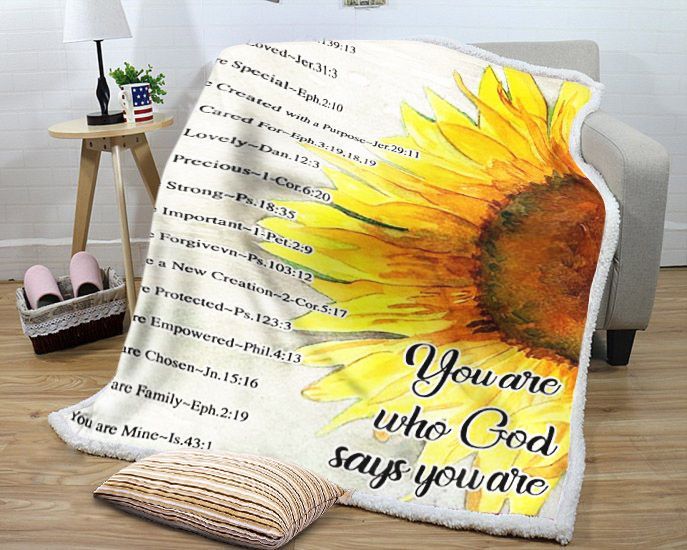 139:13
Loved~Jer.31:3
re Special~Eph.2:10
e Created with a Purpose~Jer.29:11
Cared For~Eph.3:19,18,19
Lovely~Dan.12:3
Precious~1-Cor.6:20
Strong~Ps.18:35
Important~1-Pet.2:9
e Forgivevn~Ps.103:12
e a New Creation~2-Cor.5:17
re Protected~Ps.123:3
re Empowered~Phil.4:13
are Chosen~Jn.15:16
are Family~Eph.2:19
You are Mine~Is.43:1
You are
who God
says you are